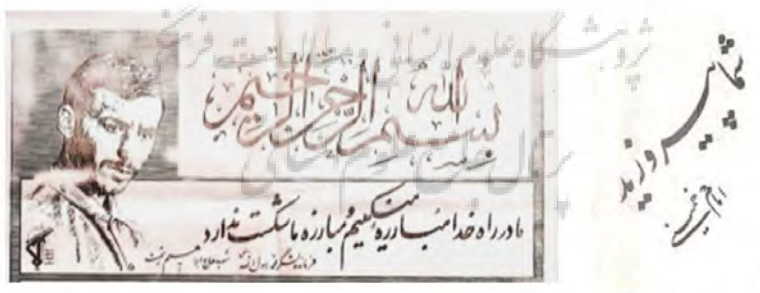 پژوهشگاه علوم انسانی و مطالعات فرهنگی
بسم الله الرحمن الرحیم
پرتال جامع علوم انسانی
ما در راه خدا مبارزه میکنیم و مبارزه ما شکست ندارد
شما پیروزید
امام خمینی